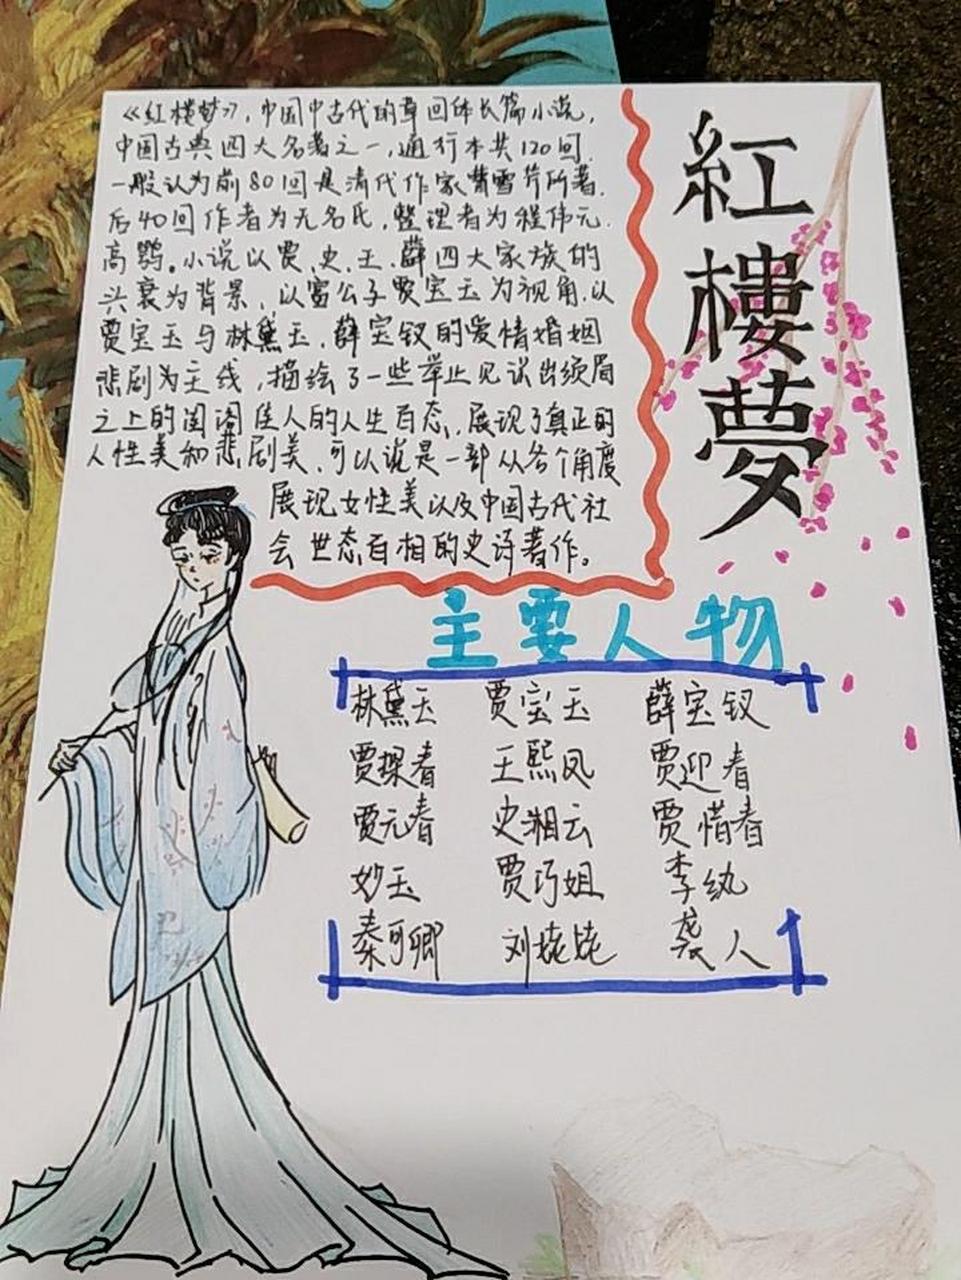 紅樓夢
《红楼梦》，中国中古代的章回体长篇小说，
中国古典四大名著之一，通行本共120回，
一般认为前80回是清代作家曹雪芹所著，
后40回作者为无名氏，整理者为程伟元、
高鹗。小说以贾、史、王、薛四大家族的
兴衰为背景，以富公子贾宝玉为视角，以
贾宝玉与林黛玉、薛宝钗的爱情婚姻
悲剧为主线，描绘了一些举止见识出须眉
之上的闺阁佳人的人生百态，展现了真正的
人性美和悲剧美，可以说是一部从各个角度
展现女性美以及中国古代社
会世态百相的史诗著作。
主要人物
林黛玉 贾宝玉 薛宝钗
贾探春 王熙凤 贾迎春
贾元春 史湘云 贾惜春
妙玉 贾巧姐 李纨
秦可卿 刘姥姥 袭人